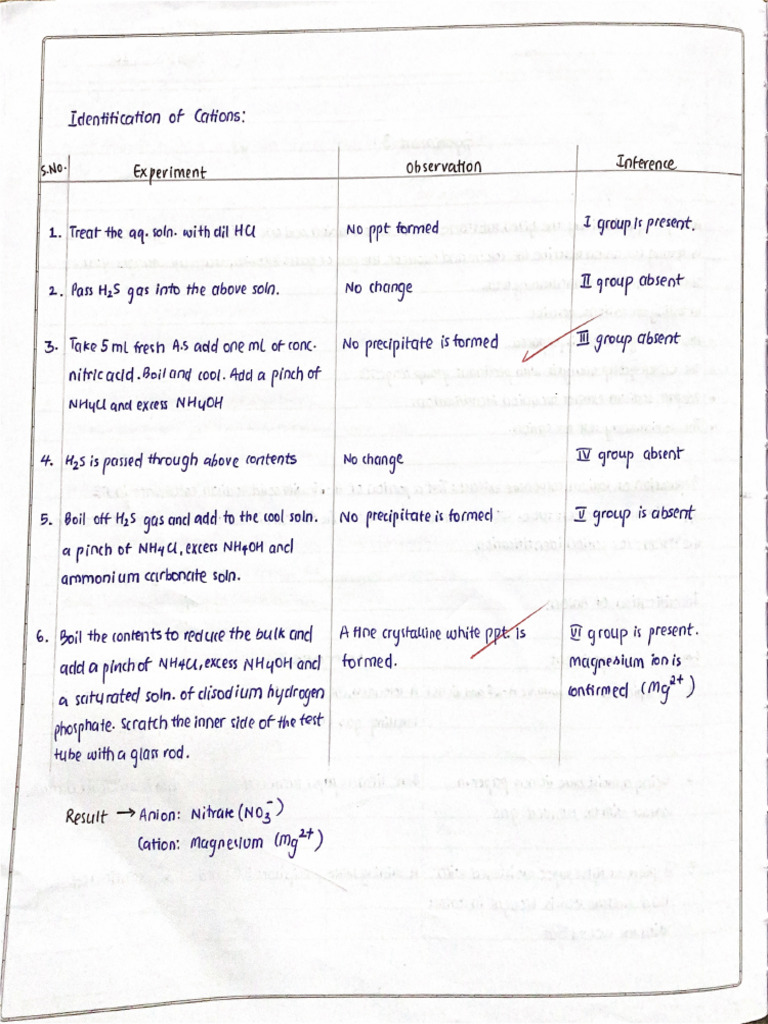 Identification of Cations:
S.No. Experiment Observation Inference
1. Treat the aq. soln. with dil HCl No ppt formed I group is present.
2. Pass H₂S gas into the above soln. No change II group absent
3. Take 5 ml fresh A.S add one ml of conc. No precipitate is formed III group absent
nitric acid. Boil and cool. Add a pinch of
NH4Cl and excess NH4OH
4. H₂S is passed through above contents No change IV group absent
5. Boil off H₂S gas and add to the cool soln. No precipitate is formed V group is absent
a pinch of NH4Cl, excess NH4OH and
ammonium carbonate soln.
6. Boil the contents to reduce the bulk and A fine crystalline white ppt. is VI group is present.
add a pinch of NH4Cl, excess NH4OH and formed. magnesium ion is
a saturated soln. of disodium hydrogen confirmed (Mg²⁺)
phosphate. Scratch the inner side of the test
tube with a glass rod.
Result → Anion: Nitrate (NO₃⁻)
Cation: Magnesium (Mg²⁺)